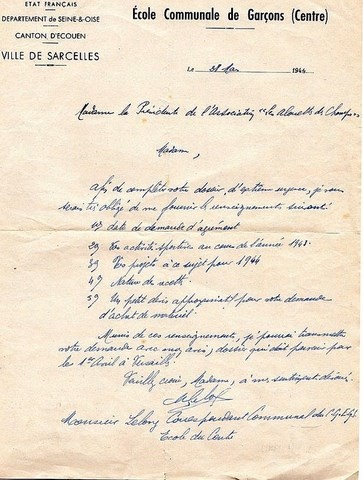 ETAT FRANÇAIS
DÉPARTEMENT de SEINE-&-OISE
CANTON D'ÉCOUEN
VILLE DE SARCELLES
École Communale de Garçons (Centre)
Le 28 Mars 1944
Madame la Présidente de l'Association "Les Alouettes des Champs"
Madame,
Afin de compléter votre dossier d'extrême urgence, je vous
serais très obligé de me fournir les renseignements suivants:
1º) date de demande d'agrément
2º) Vos activités sportives au cours de l'année 1943.
3º) Vos projets à ce sujet pour 1944
4º) Nature de
5º) Un petit devis approximatif pour votre demande
d'achat de matériel.
Munis de ces renseignements, je pourrai transmettre
votre demande avec mon avis, dossier qui doit parvenir pour
le 1er Avril à Versailles.
Veuillez croire, Madame, à mes sentiments dévoués.
Monsieur Correspondant Communal
École du Centre